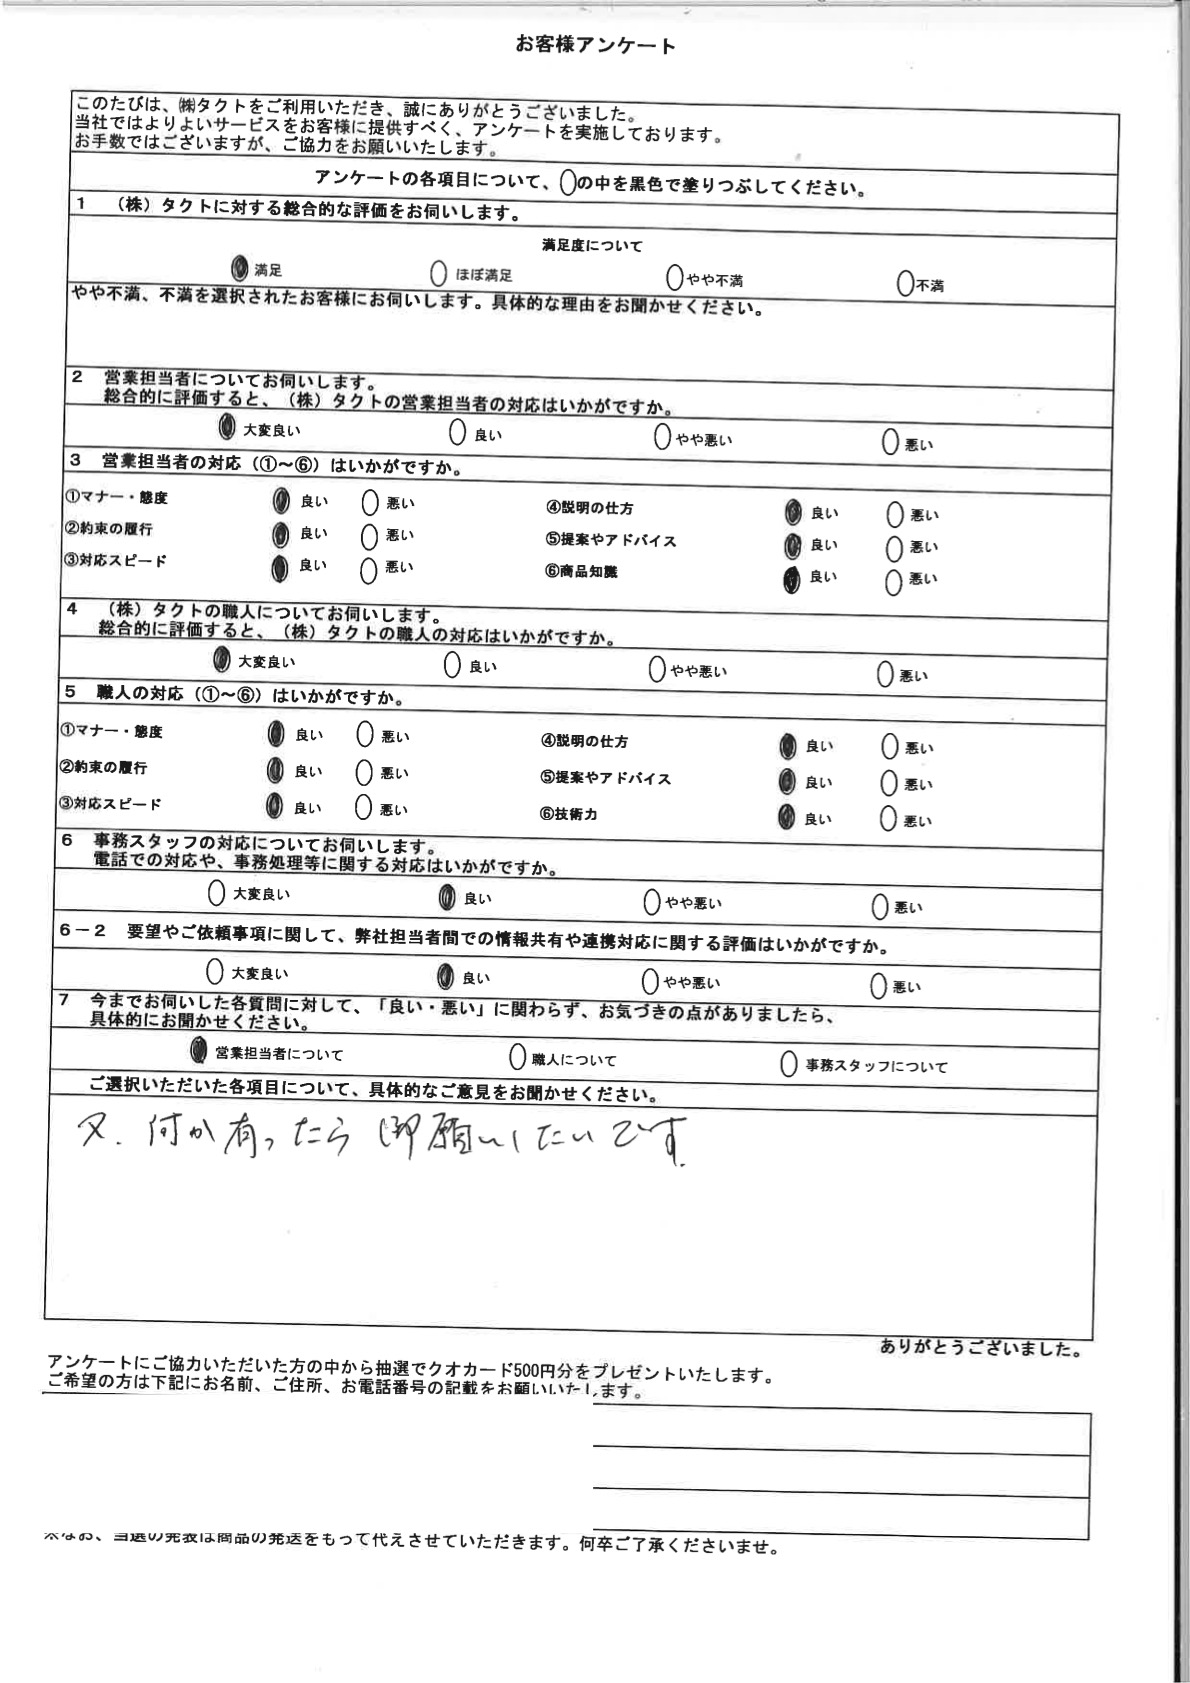 お客様アンケート
このたびは、㈱タクトをご利用いただき、誠にありがとうございました。
当社ではよりよいサービスをお客様に提供すべく、アンケートを実施しております。
お手数ではございますが、ご協力をお願いいたします。
アンケートの各項目について、○の中を黒色で塗りつぶしてください。
1 （株）タクトに対する総合的な評価をお伺いします。
満足度について
満足 ほぼ満足 やや不満 不満
やや不満、不満を選択されたお客様にお伺いします。具体的な理由をお聞かせください。
2 営業担当者についてお伺いします。
総合的に評価すると、（株）タクトの営業担当者の対応はいかがですか。
大変良い 良い やや悪い 悪い
3 営業担当者の対応（①～⑥）はいかがですか。
①マナー・態度 良い 悪い ④説明の仕方 良い 悪い
②約束の履行 良い 悪い ⑤提案やアドバイス 良い 悪い
③対応スピード 良い 悪い ⑥商品知識 良い 悪い
4 （株）タクトの職人についてお伺いします。
総合的に評価すると、（株）タクトの職人の対応はいかがですか。
大変良い 良い やや悪い 悪い
5 職人の対応（①～⑥）はいかがですか。
①マナー・態度 良い 悪い ④説明の仕方 良い 悪い
②約束の履行 良い 悪い ⑤提案やアドバイス 良い 悪い
③対応スピード 良い 悪い ⑥技術力 良い 悪い
6 事務スタッフの対応についてお伺いします。
電話での対応や、事務処理等に関する対応はいかがですか。
大変良い 良い やや悪い 悪い
6－2 要望やご依頼事項に関して、弊社担当者間での情報共有や連携対応に関する評価はいかがですか。
大変良い 良い やや悪い 悪い
7 今までお伺いした各質問に対して、「良い・悪い」に関わらず、お気づきの点がありましたら、
具体的にお聞かせください。
営業担当者について 職人について 事務スタッフについて
ご選択いただいた各項目について、具体的なご意見をお聞かせください。
又、何か有ったら御願いしたいです。
ありがとうございました。
アンケートにご協力いただいた方の中から抽選でクオカード500円分をプレゼントいたします。
ご希望の方は下記にお名前、ご住所、お電話番号の記載をお願いいたします。
※なお、当選の発表は商品の発送をもって代えさせていただきます。何卒ご了承くださいませ。